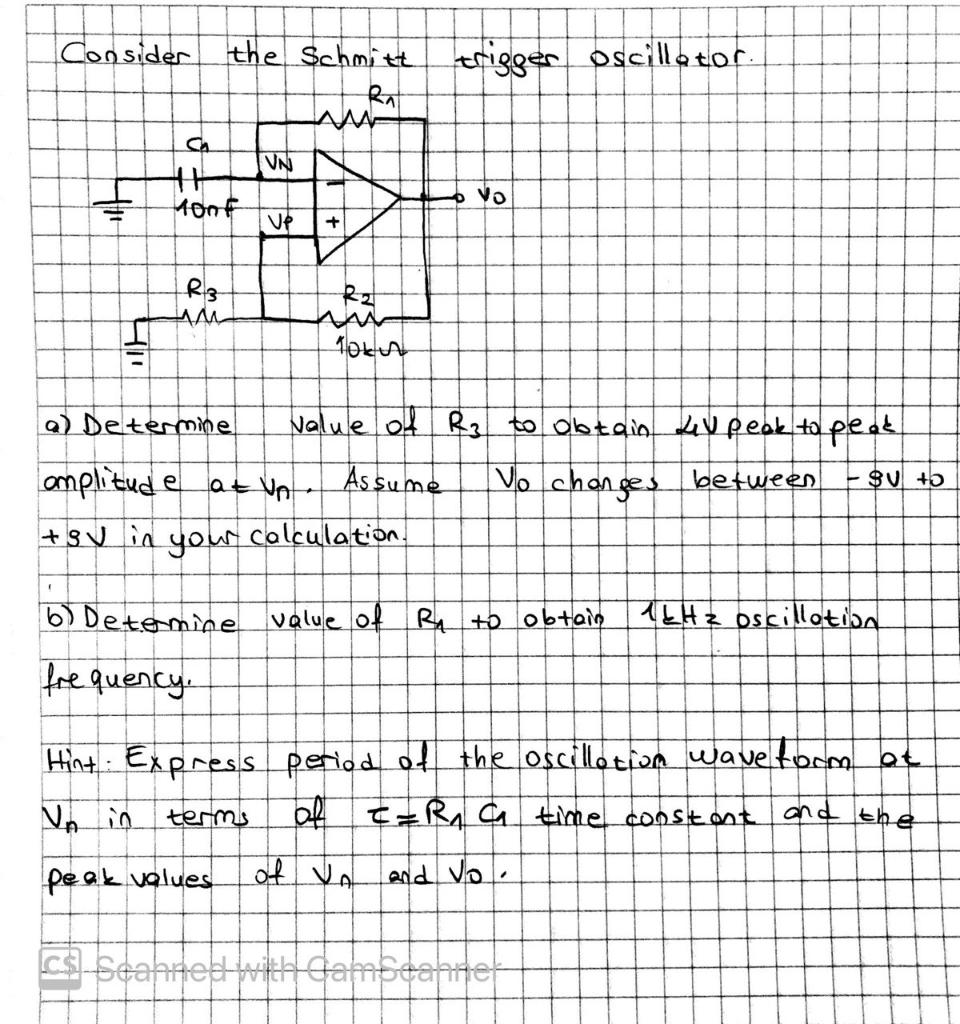 Consider the Schmitt trigger oscillator.
R1
C1
VN
VO
10nF
VP
R3
R2
10kΩ
a) Determine value of R3 to obtain 4V peak to peak
amplitude at Vn. Assume Vo changes between -9V to
+9V in your calculation.
b) Determine value of R1 to obtain 1kHz oscillation
frequency.
Hint: Express period of the oscillation waveform at
Vn in terms of τ=R1 C1 time constant and the
peak values of Vn and Vo.
CS Scanned with CamScanner